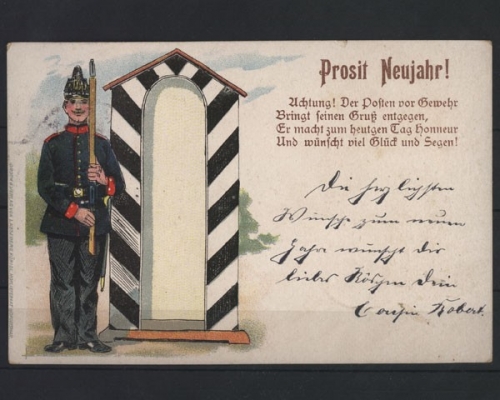 Prosit Neujahr!
Achtung! Der Posten vor Gewehr
Bringt seinen Gruß entgegen,
Er macht zum heutgen Tag Honneur
Und wünscht viel Glück und Segen!
Die herzlichsten
Wünsche zum neuen
Jahre wünscht dir
liebes Röschen Dein
Cousin Robert.